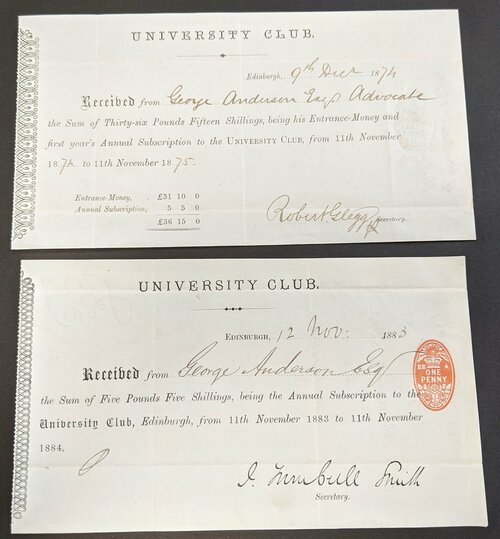 UNIVERSITY CLUB.
Edinburgh, 9th Decr 1874
Received from George Anderson Esqr Advocate
the Sum of Thirty-six Pounds Fifteen Shillings, being his Entrance-Money and
first year's Annual Subscription to the UNIVERSITY CLUB, from 11th November
1874 to 11th November 1875.
Entrance-Money, . £31 10 0
Annual Subscription, 5 5 0
£36 15 0
Robert Glegg
Secretary.
UNIVERSITY CLUB.
EDINBURGH, 12 Nov. 1883
Received from George Anderson Esq
the Sum of Five Pounds Five Shillings, being the Annual Subscription to the
University Club, Edinburgh, from 11th November 1883 to 11th November
1884.
ONE
PENNY
J. Turnbull Smith
Secretary.